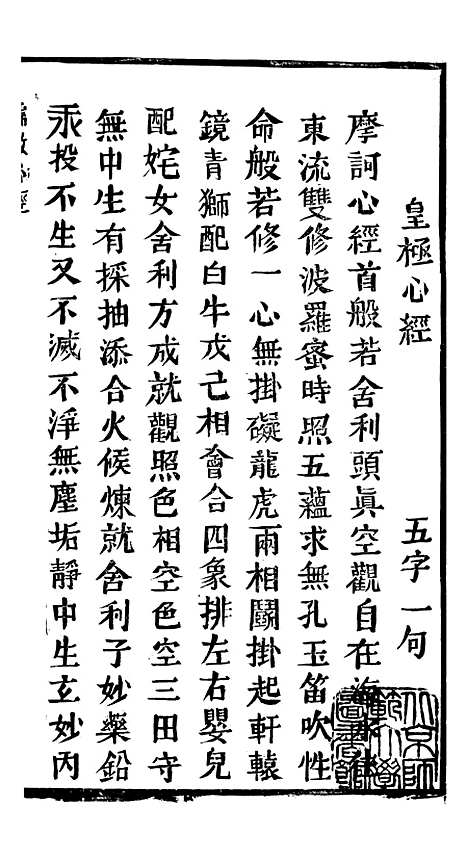 皇極心經　五字一句
摩訶心經首般若舍利頭眞空觀自在海
東流雙修波羅蜜時照五蘊求無孔玉笛吹性
命般若修一心無掛礙龍虎兩相鬬掛起軒轅
鏡青獅配白牛戊己相會合四象排左右嬰兒
配姹女舍利方成就觀照色相空色空三田守
無中生有採抽添合火候煉就舍利子妙藥鉛
汞投不生又不滅不淨無塵垢靜中生玄妙丙